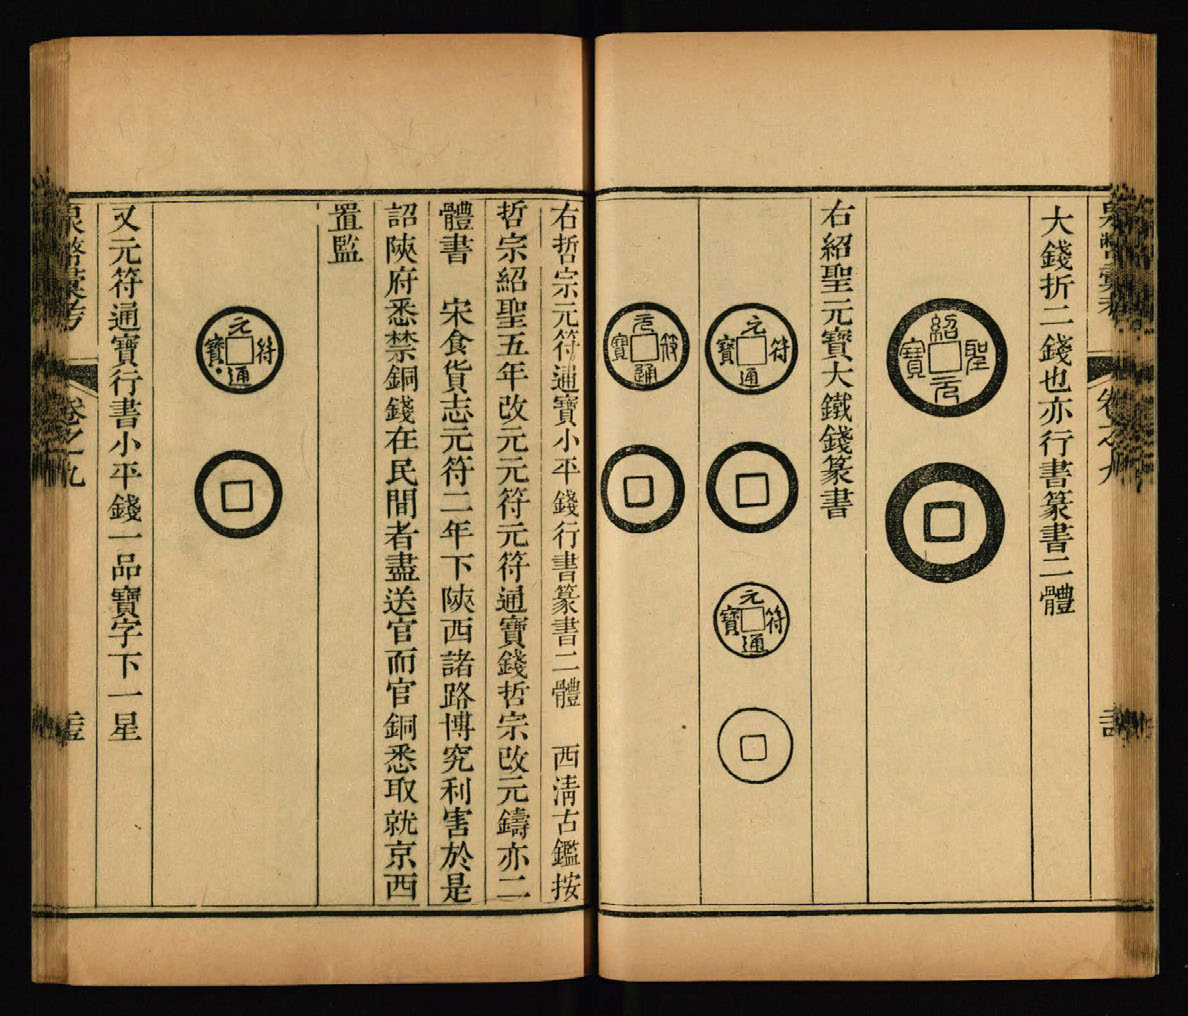 大錢折二錢也亦行書篆書二體
紹聖元寶
右紹聖元寶大鐵錢篆書
元符通寶
元符通寶
元符通寶
右哲宗元符通寶小平錢行書篆書二體　西淸古鑑按
哲宗紹聖五年改元元符元符通寶錢哲宗改元鑄亦二
體書　宋食貨志元符二年下陝西諸路博究利害於是
詔陝府悉禁銅錢在民間者盡送官而官銅悉取就京西
置監
元符通寶
又元符通寶行書小平錢一品寶字下一星
泉幣彙考
卷之九